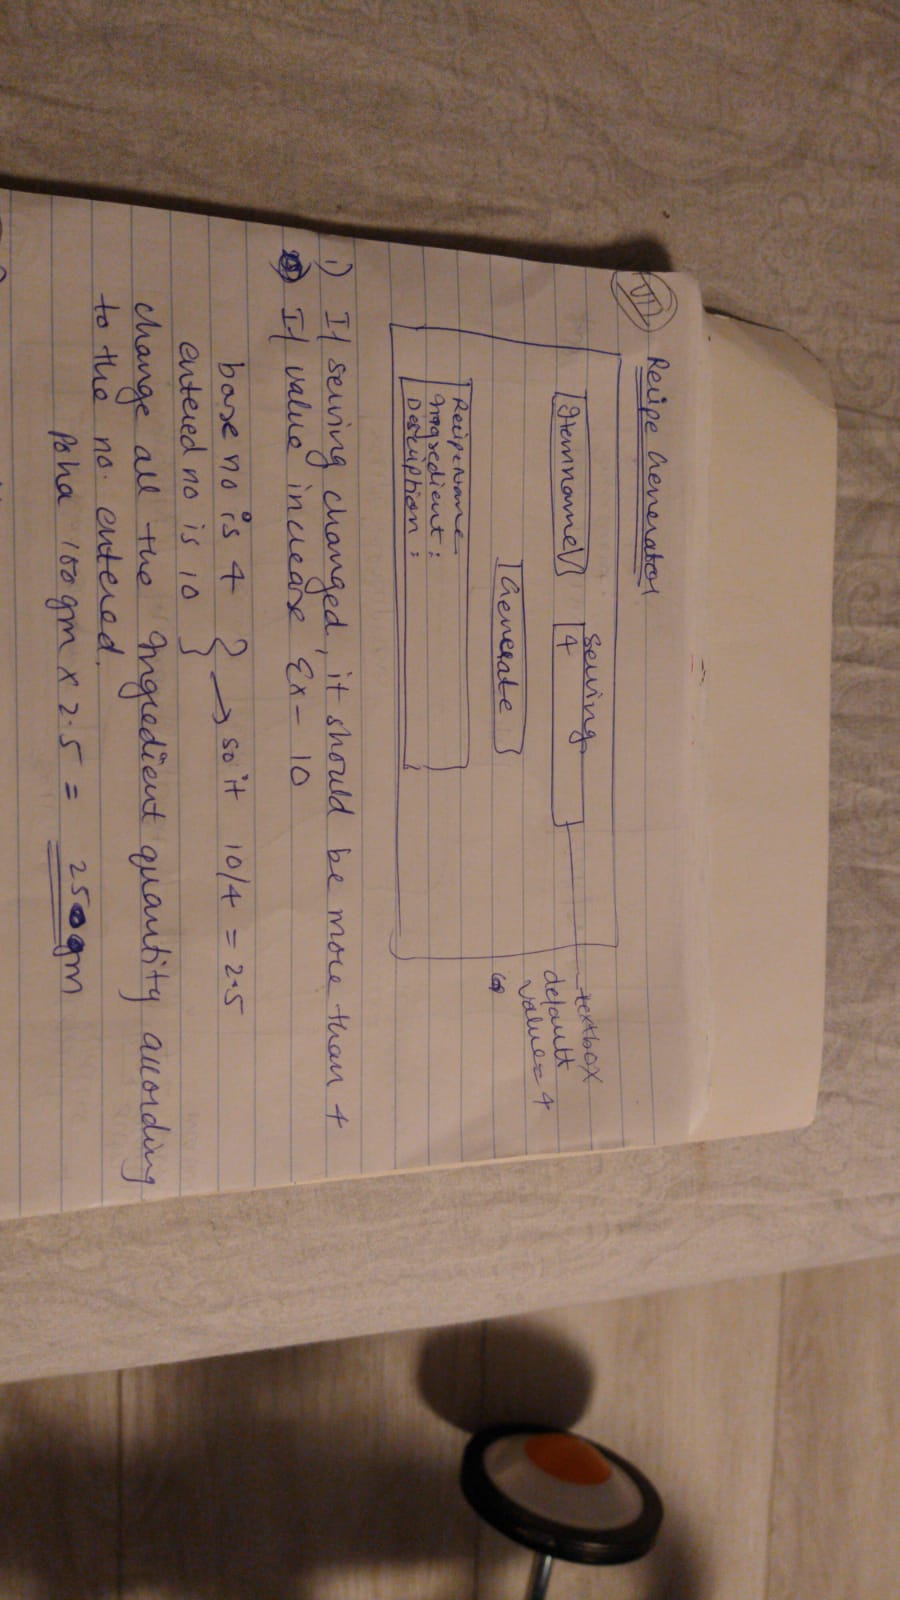 VII
Recipe Generator
Serving
Itemname V
4
textbox
default
value = 4
Generate
Recip Name
Ingredient :
Description :
1) If serving changed, it should be more than 4
If value increase Ex - 10
base no is 4
entered no is 10 } → so it 10/4 = 2.5
change all the Ingredient quantity according
to the no. entered.
Poha 100 gm x 2.5 = 250gm